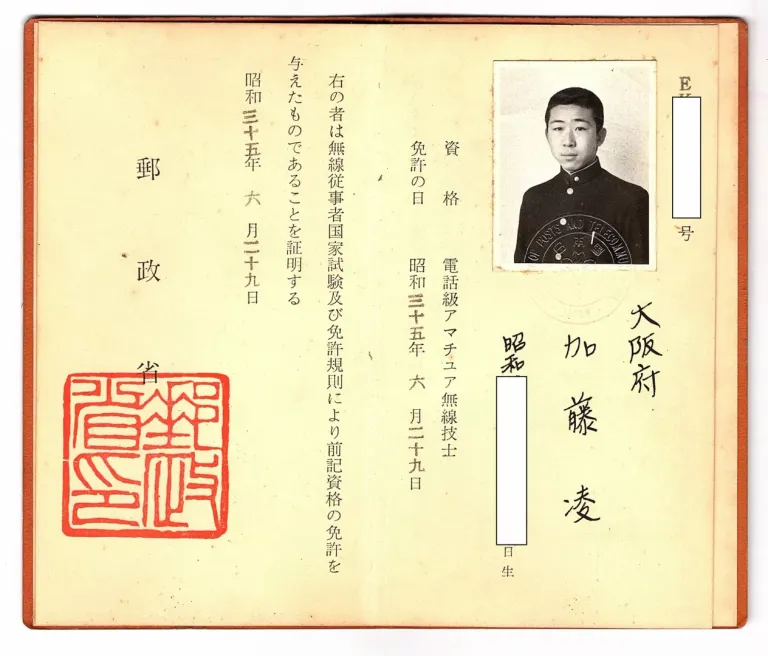 EK
号
大阪府
加藤凌
昭和
日生
資格 電話級アマチユア無線技士
免許の日 昭和三十五年 六 月二十九日
右の者は無線従事者国家試験及び免許規則により前記資格の免許を
与えたものであることを証明する
昭和三十五年 六 月二十九日
郵政省
郵政省印
OF POSTS AND TELECOMMU